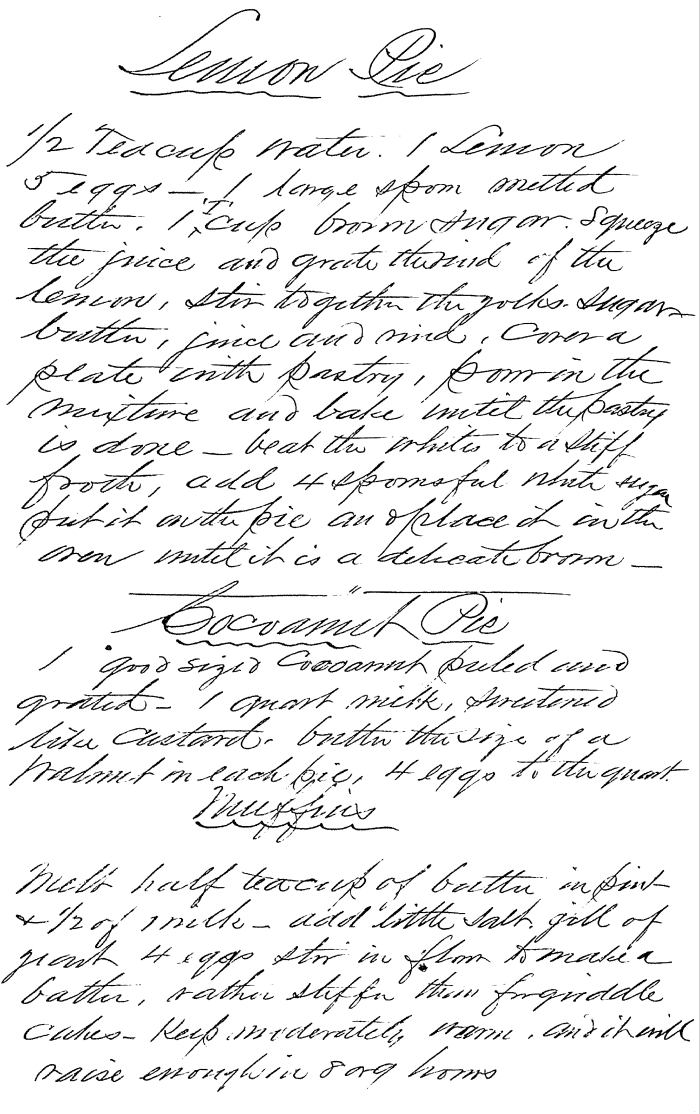 Lemon Pie
1/2 Teacup water. 1 Lemon
5 eggs — 1 large spoon melted
butter. 1 cup brown sugar. Squeeze
the juice and grate the rind of the
lemon, stir together the yolks. sugar
butter, juice and rind. Cover a
plate with pastry, pour in the
mixture and bake until the pastry
is done — beat the whites to a stiff
froth, add 4 spoonsful white sugar
put it on the pie and place it in the
oven until it is a delicate brown —
Cocoanut Pie
1 good sized Cocoanut peeled and
grated — 1 quart milk, sweetened
like custard. butter the size of a
Walnut in each pie, 4 eggs to the quart.
Muffins
Melt half teacup of butter in pint
& 1/2 of milk — add little salt. gill of
yeast 4 eggs stir in flour to make a
batter, rather stiffer than for griddle
cakes — Keep moderately warm. and it will
raise enough in 8 or 9 hours